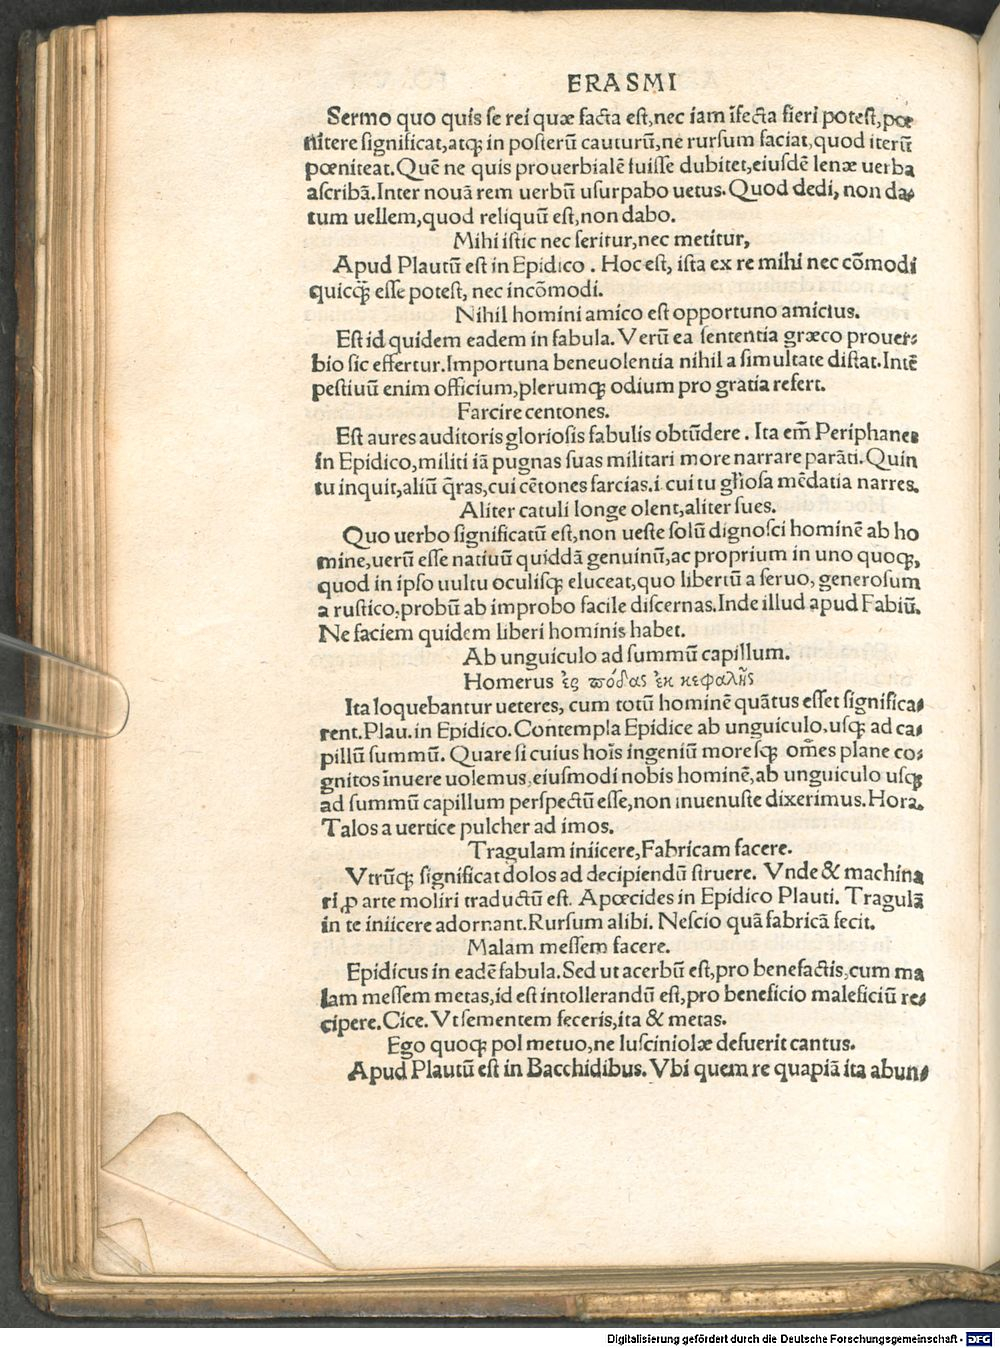 ERASMI
Sermo quo quis se rei quæ facta est, nec iam īfecta fieri potest, pœ
nitere significat, atqꝫ in posterū cauturū, ne rursum faciat, quod iterū
pœniteat. Quē ne quis prouerbialē fuisse dubitet, eiusdē lenæ uerba
ascribā. Inter nouā rem uerbū usurpabo uetus. Quod dedi, non da⸗
tum uellem, quod reliquū est, non dabo.
Mihi istic nec seritur, nec metitur,
Apud Plautū est in Epidico. Hoc est, ista ex re mihi nec cōmodi
quicq̃ esse potest, nec incōmodi.
Nihil homini amico est opportuno amicius.
Est id quidem eadem in fabula. Verū ea sententia græco prouer⸗
bio sic effertur. Importuna beneuolentia nihil a simultate distat. Intē
pestiuū enim officium, plerumqꝫ odium pro gratia refert.
Farcire centones.
Est aures auditoris gloriosis fabulis obtūdere. Ita em̄ Periphanes
in Epidico, militi iā pugnas suas militari more narrare parāti. Quin
tu inquit, aliū q̄ras, cui cētones farcias. i. cui tu gl̄iosa mēdatia narres.
Aliter catuli longe olent, aliter sues.
Quo uerbo significatū est, non ueste solū dignosci hominē ab ho
mine, uerū esse natiuū quiddā genuinū, ac proprium in uno quoqꝫ,
quod in ipso uultu oculisqꝫ eluceat, quo libertū a seruo, generosum
a rustico, probū ab improbo facile discernas. Inde illud apud Fabiū.
Ne faciem quidem liberi hominis habet.
Ab unguiculo ad summū capillum.
Homerus ἐς πόδας ἐκ κεφαλῆς
Ita loquebantur ueteres, cum totū hominē quātus esset significa⸗
rent. Plau. in Epidico. Contempla Epidice ab unguiculo, usqꝫ ad ca⸗
pillū summū. Quare si cuius hoīs ingeniū moresqꝫ om̄es plane co⸗
gnitos īnuere uolemus, eiusmodi nobis hominē, ab unguiculo usqꝫ
ad summū capillum perspectū esse, non inuenuste dixerimus. Hora.
Talos a uertice pulcher ad imos.
Tragulam iniicere, Fabricam facere.
Vtrūqꝫ significat dolos ad decipiendū struere. Vnde & machina
ri, ꝓ arte moliri traductū est. Apœcides in Epidico Plauti. Tragulā
in te iniicere adornant. Rursum alibi. Nescio quā fabricā fecit.
Malam messem facere.
Epidicus in eadē fabula. Sed ut acerbū est, pro benefactis, cum ma
lam messem metas, id est intollerandū est, pro beneficio maleficiū re⸗
cipere. Cice. Vt sementem feceris, ita & metas.
Ego quoqꝫ pol metuo, ne lusciniolæ defuerit cantus.
Apud Plautū est in Bacchidibus. Vbi quem re quapiā ita abun⸗
Digitalisierung gefördert durch die Deutsche Forschungsgemeinschaft - DFG